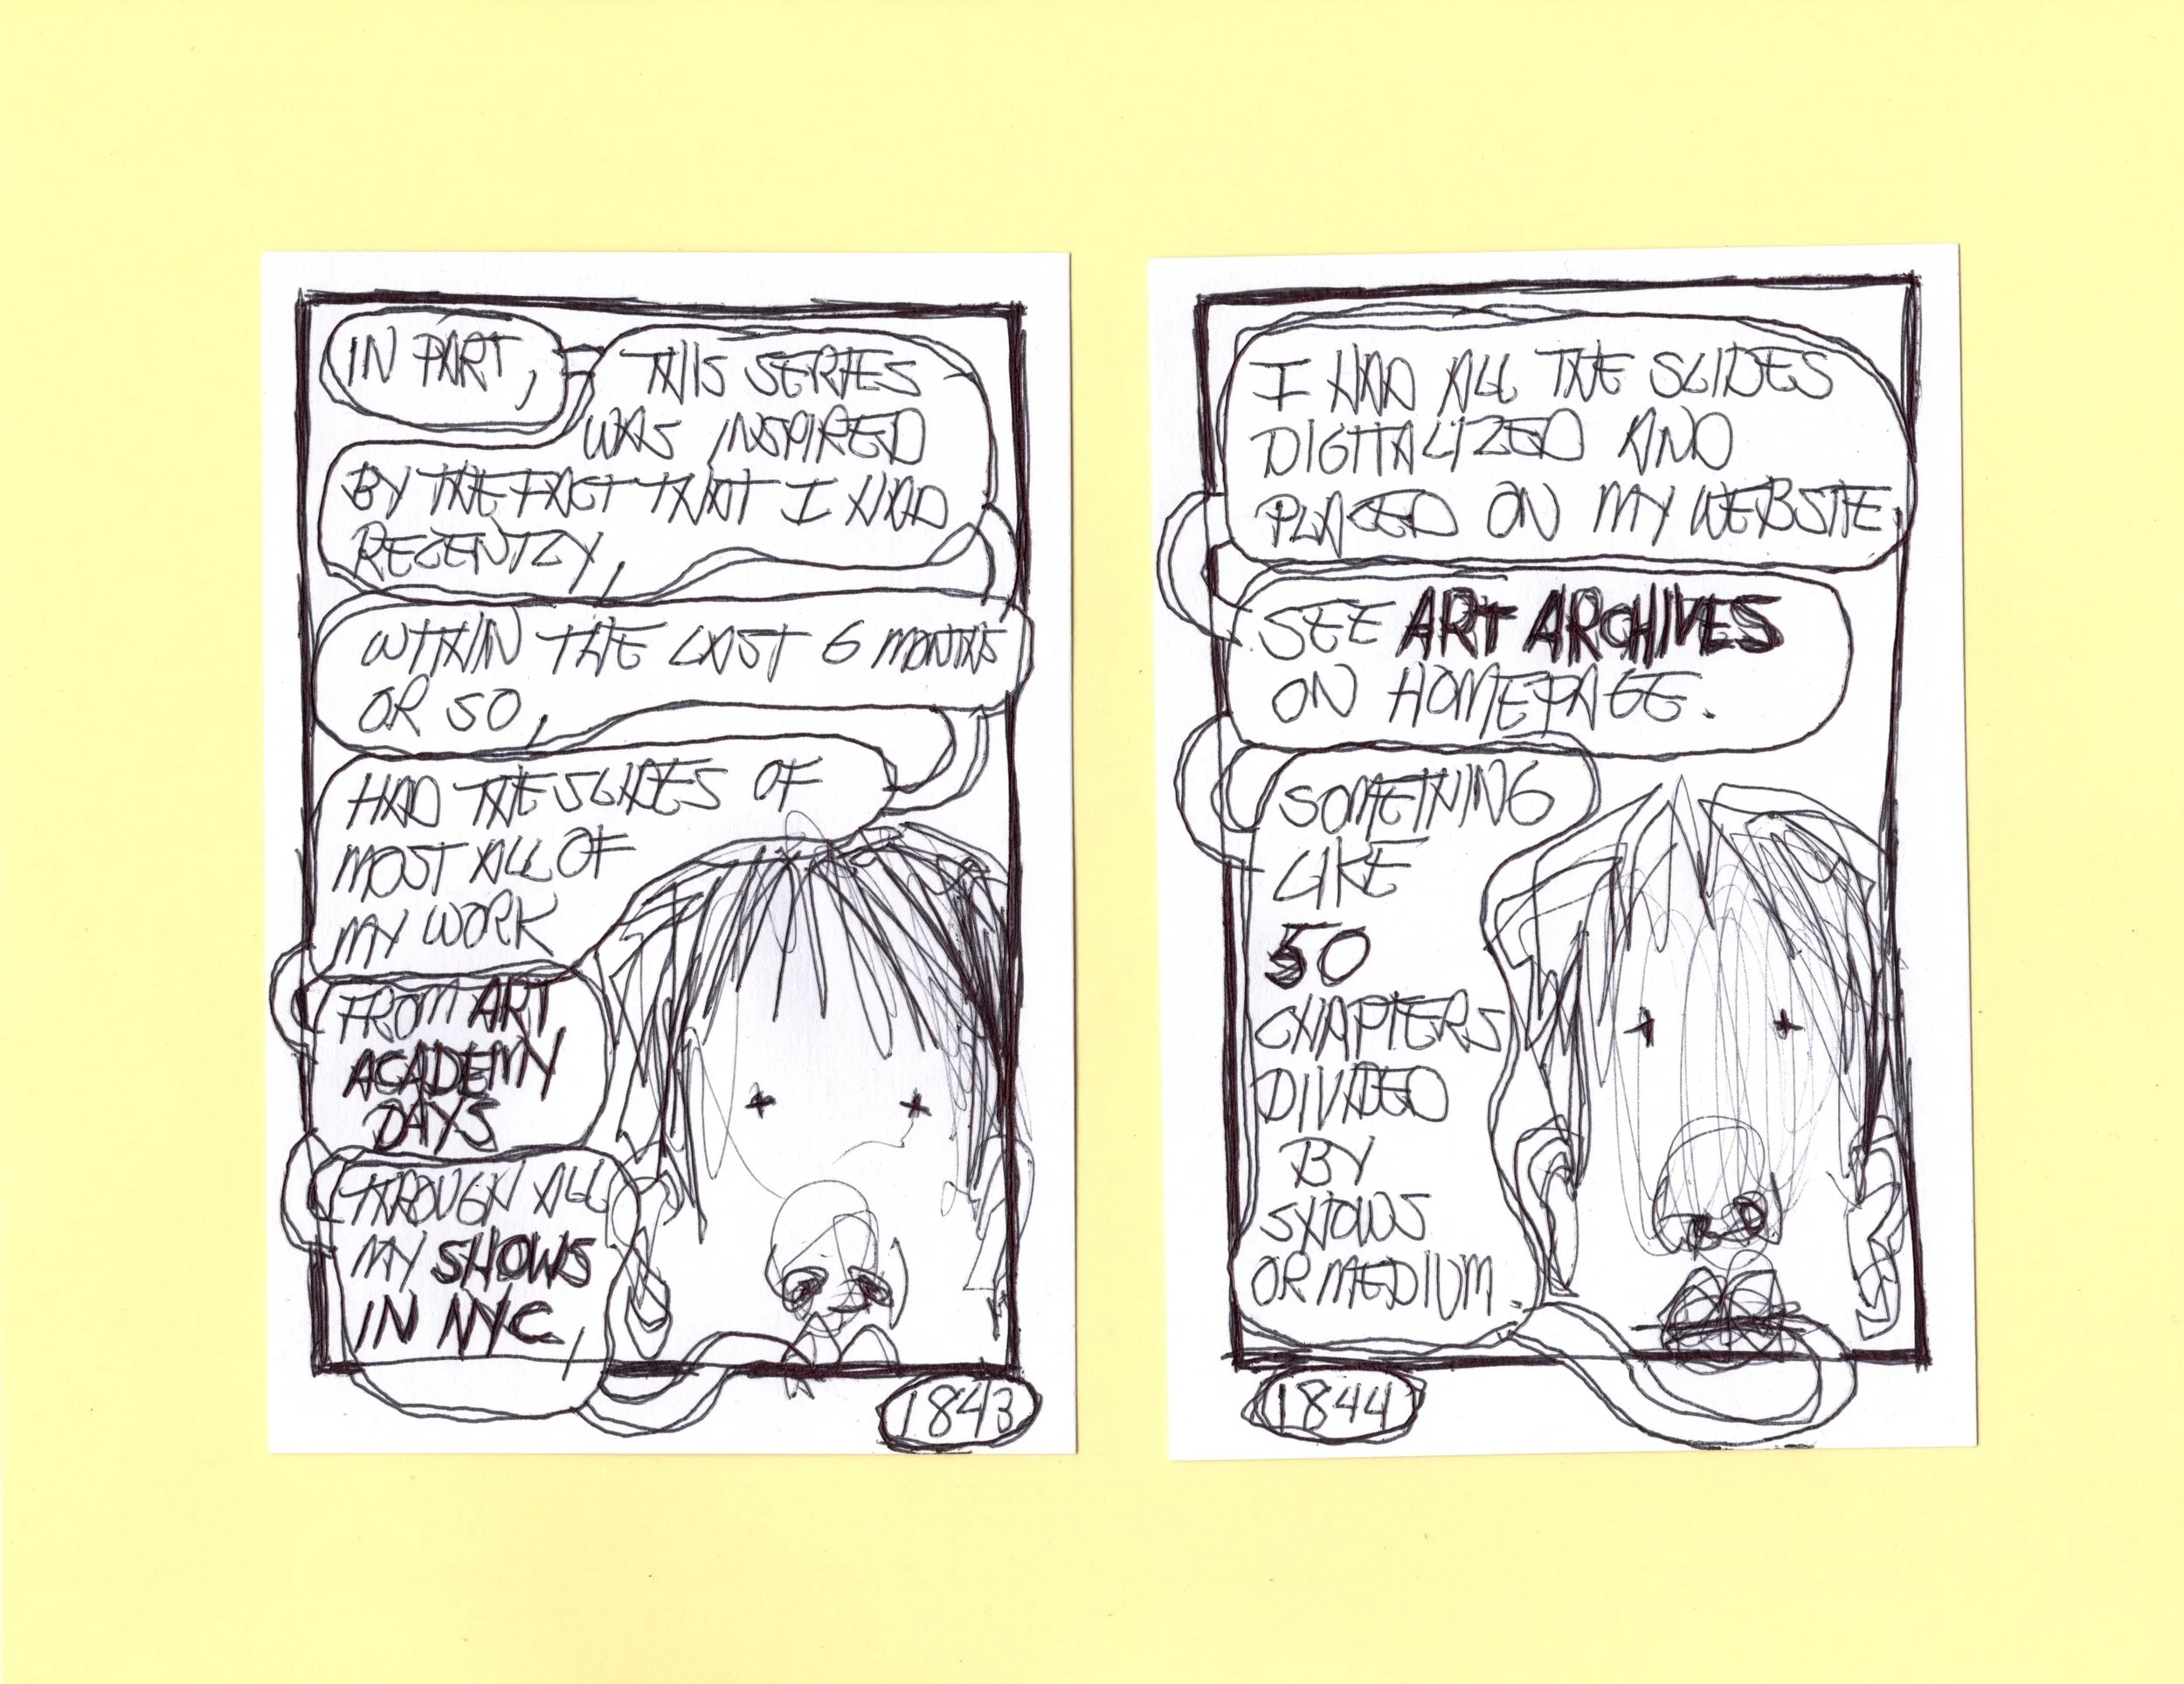 IN PART,
THIS SERIES
WAS INSPIRED
BY THE FACT THAT I HAD
RECENTLY,
WITHIN THE LAST 6 MONTHS
OR SO,
HAD THE SLIDES OF
MOST ALL OF
MY WORK
FROM ART
ACADEMY
DAYS
THROUGH ALL
MY SHOWS
IN NYC,
1843
I HAD ALL THE SLIDES
DIGITALIZED AND
PLACED ON MY WEBSITE,
SEE ART ARCHIVES
ON HOMEPAGE.
SOMETHING
LIKE
50
CHAPTERS
DIVIDED
BY
SHOWS
OR MEDIUM.
1844